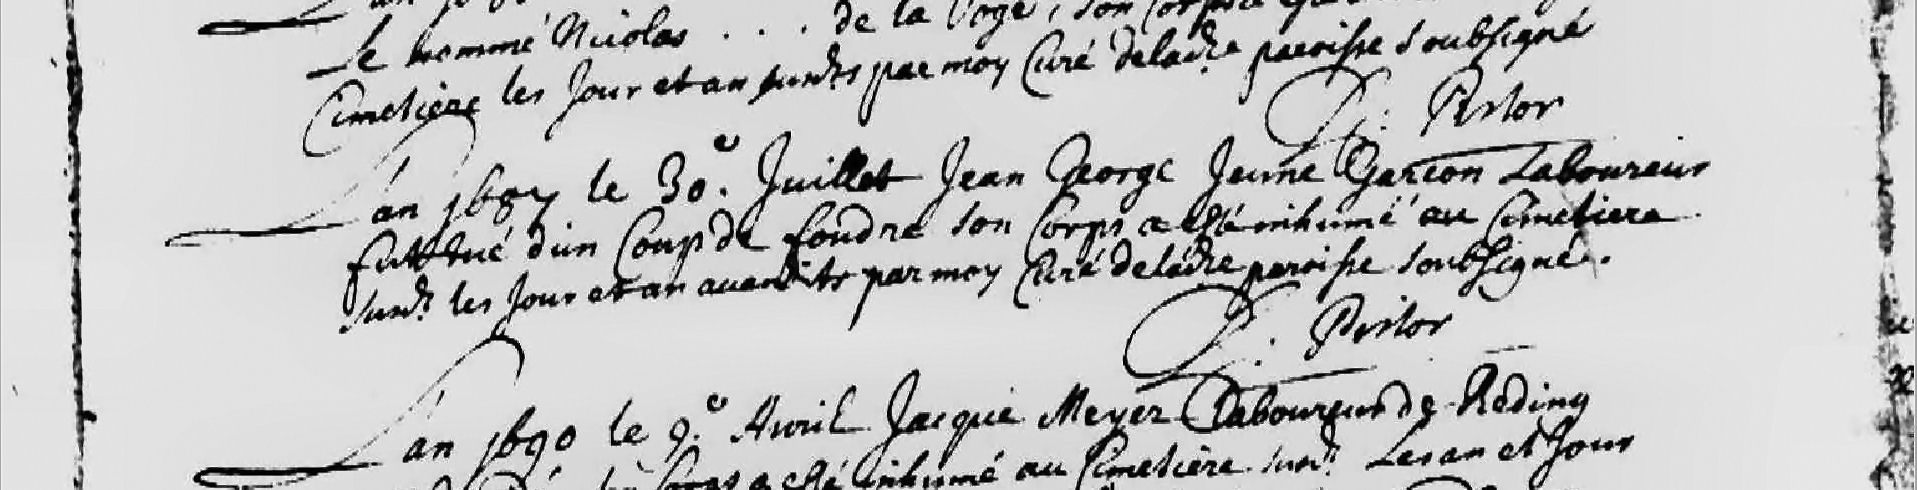 Le nommé Nicolas . . . de la Voge, son corps
Cimetiere les Jour et an susdts par moy Curé deladte paroisse soubsigné
Pistor
L'an 1687 le 30.e Juillet Jean George Jeune Garcon Laboureur
fut tué d'un Coup de foudre son Corps a esté inhumé au Cimetiere
susdt les Jour et an avandits par moy Curé deladte paroisse soubsigné.
Pistor
L'an 1690 le 9.e Avril Jacque Meyer Laboureur de Reding
esté inhumé au Cimetière susdt Les an et Jour